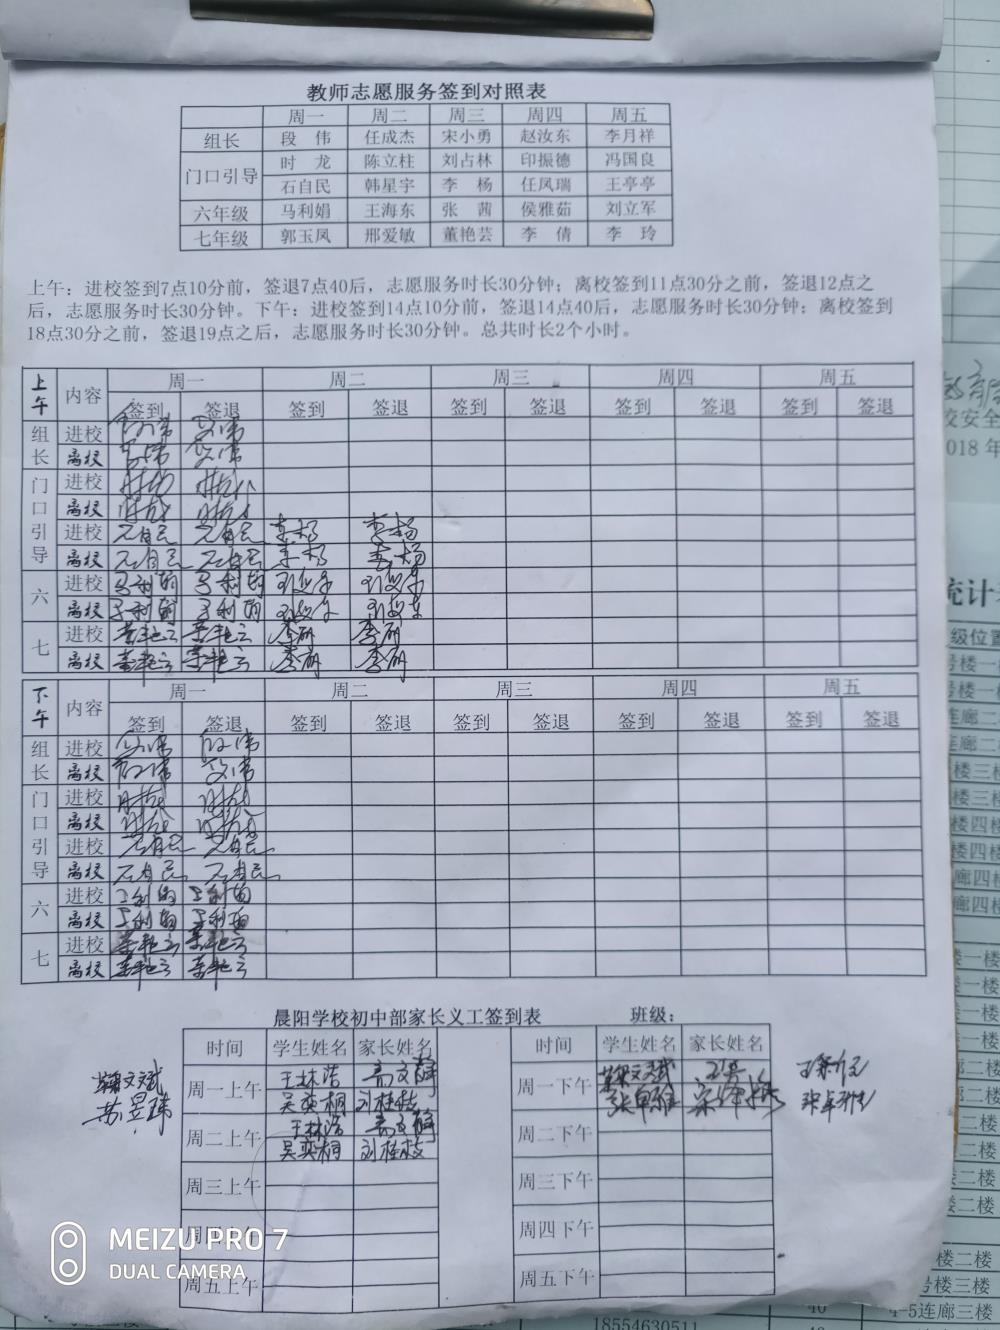 教师志愿服务签到对照表
周一 周二 周三 周四 周五
组长 段 伟 任成杰 宋小勇 赵汝东 李月祥
门口引导 时 龙 陈立柱 刘占林 印振德 冯国良
石自民 韩星宇 李 杨 任凤瑞 王亭亭
六年级 马利娟 王海东 张 茜 侯雅茹 刘立军
七年级 郭玉凤 邢爱敏 董艳芸 李 倩 李 玲
上午：进校签到7点10分前，签退7点40后，志愿服务时长30分钟；离校签到11点30分之前，签退12点之
后，志愿服务时长30分钟。下午：进校签到14点10分前，签退14点40后，志愿服务时长30分钟；离校签到
18点30分之前，签退19点之后，志愿服务时长30分钟。总共时长2个小时。
上午 内容 周一 周二 周三 周四 周五
签到 签退 签到 签退 签到 签退 签到 签退 签到 签退
组长 进校 段伟 段伟
离校 段伟 段伟
门口引导 进校 时龙 时龙
离校 时龙 时龙
进校 石自民 石自民 李杨 李杨
离校 石自民 石自民 李杨 李杨
六 进校 马利娟 马利娟
离校 马利娟 马利娟
七 进校 董艳芸 董艳芸
离校 董艳芸 董艳芸
下午 内容 周一 周二 周三 周四 周五
签到 签退 签到 签退 签到 签退 签到 签退 签到 签退
组长 进校 段伟 段伟
离校 段伟 段伟
门口引导 进校 时龙 时龙
离校 时龙 时龙
进校 石自民 石自民
离校 石自民 石自民
六 进校 马利娟 马利娟
离校 马利娟 马利娟
七 进校 董艳芸 董艳芸
离校 董艳芸 董艳芸
晨阳学校初中部家长义工签到表 班级：
时间 学生姓名 家长姓名 时间 学生姓名 家长姓名
周一上午 王林浩
吴奕桐 刘桂枝
周二上午 王林浩
吴奕桐 刘桂枝
周三上午
周四上午
周五上午
周一下午
周二下午
周三下午
周四下午
周五下午
苏昱玮
MEIZU PRO 7
DUAL CAMERA
018 年
统计
级位置
4-5连廊三楼
18554630511